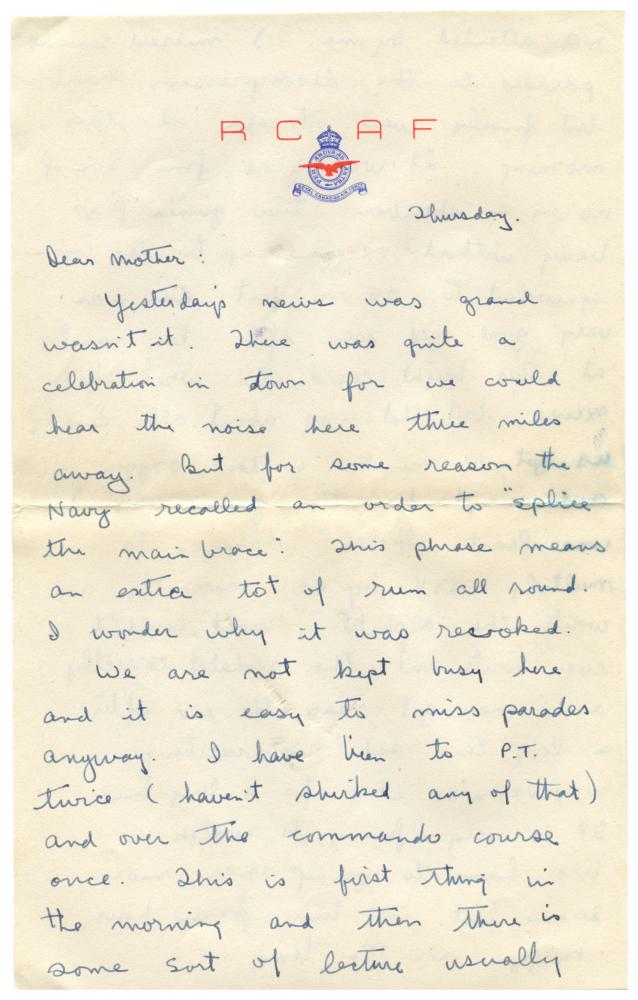 RCAF
PER ARDUA AD ASTRA
ROYAL CANADIAN AIR FORCE
Thursday.
Dear Mother:
Yesterday's news was grand
wasn't it. There was quite a
celebration in town for we could
hear the noise here three miles
away. But for some reason the
Navy recalled an order to "splice
the main brace". This phrase means
an extra tot of rum all round.
I wonder why it was revoked.
We are not kept busy here
and it is easy to miss parades
anyway. I have been to P.T.
twice (haven't shirked any of that)
and over the commando course
once. This is first thing in
the morning and then there is
some sort of lecture usually